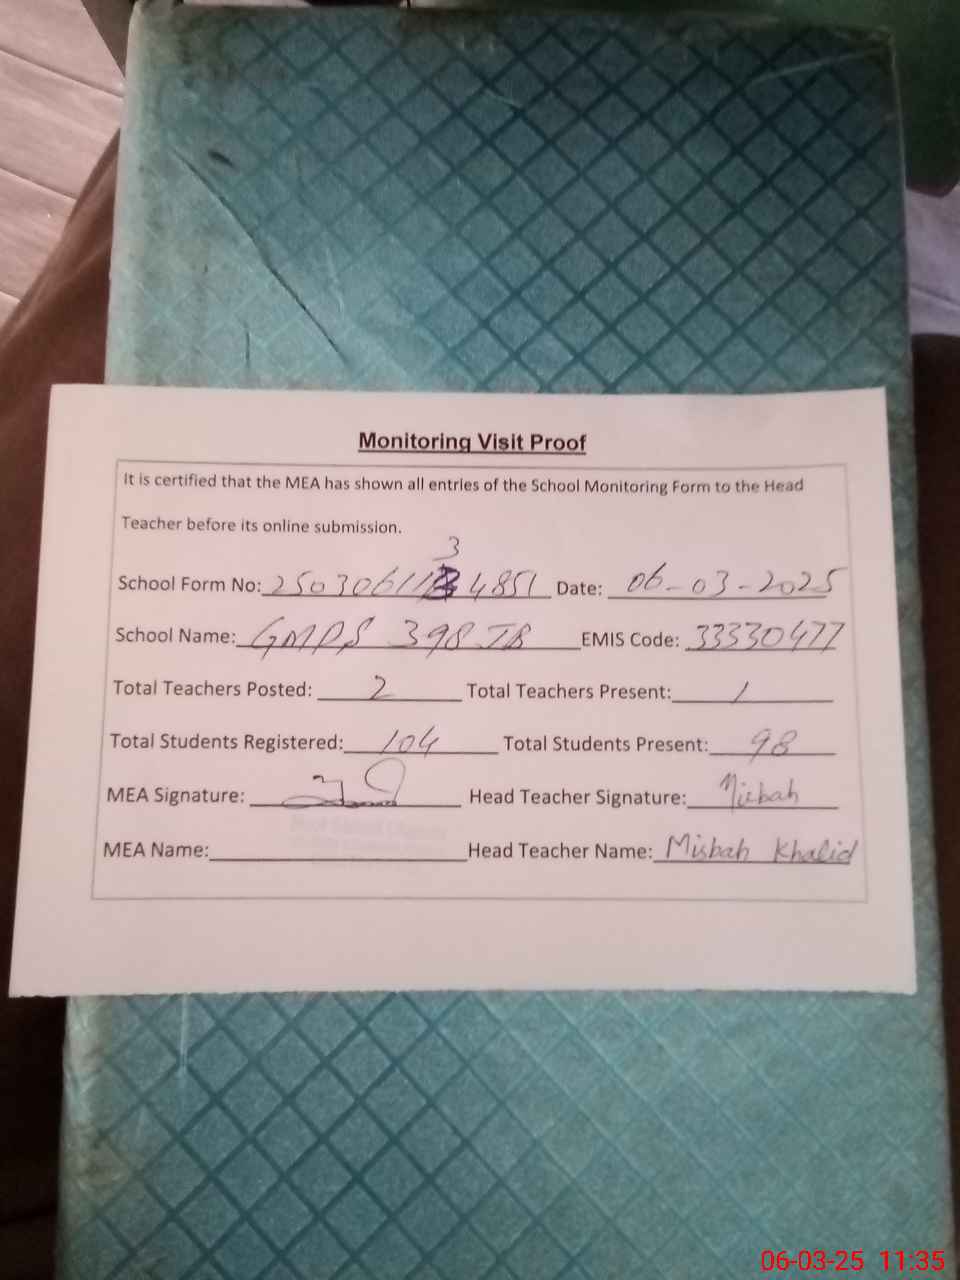 Monitoring Visit Proof
It is certified that the MEA has shown all entries of the School Monitoring Form to the Head
Teacher before its online submission.
3
School Form No: 25030611 4851 Date: 06-03-2025
School Name: GMPS 398 JB EMIS Code: 33330477
Total Teachers Posted: 2 Total Teachers Present: 1
Total Students Registered: 104 Total Students Present: 98
MEA Signature: Head Teacher Signature: Misbah
MEA Name: Head Teacher Name: Misbah Khalid
06-03-25 11:35